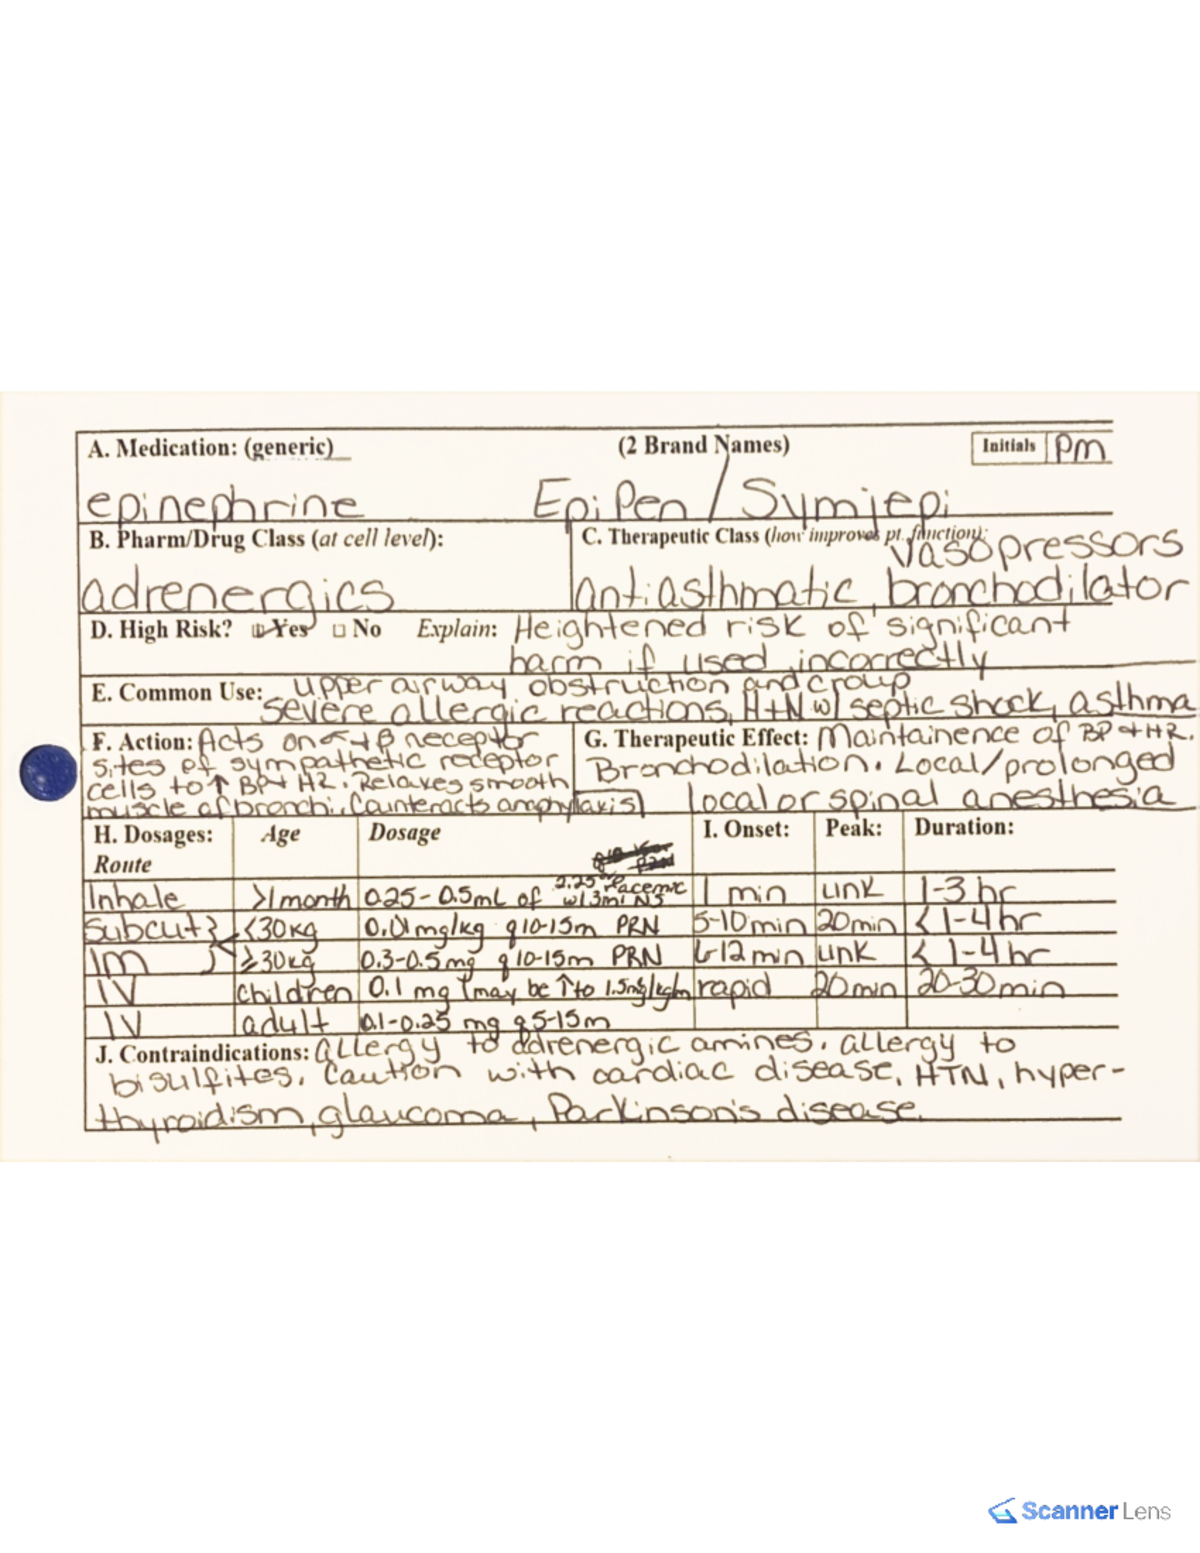 A. Medication: (generic) (2 Brand Names) Initials PM
epinephrine EpiPen / Symjepi
B. Pharm/Drug Class (at cell level): C. Therapeutic Class (how improves pt. function):
vasopressors
adrenergics antiasthmatic, bronchodilator
D. High Risk? Yes No Explain: Heightened risk of significant
harm if used incorrectly
E. Common Use: upper airway obstruction and croup
severe allergic reactions, HTN w/ septic shock, asthma
F. Action: Acts on α + β receptor
sites of sympathetic receptor
cells to ↑ BP + HR. Relaxes smooth
muscle of bronchi. Counteracts anaphylaxis
G. Therapeutic Effect: Maintainence of BP + HR.
Bronchodilation. Local/prolonged
local or spinal anesthesia
H. Dosages: Age Dosage I. Onset: Peak: Duration:
Route
Inhale >1month 0.25-0.5mL of 2.25% racemic w/ 3ml NS 1 min unk 1-3 hr
Subcut <30kg 0.01mg/kg q10-15m PRN 5-10min 20min < 1-4hr
IM ≥30kg 0.3-0.5mg q10-15m PRN 6-12min unk < 1-4hr
IV children 0.1 mg (may be ↑ to rapid 20min 20-30min
IV adult 0.1-0.25 mg q5-15m
J. Contraindications: allergy to adrenergic amines. allergy to
bisulfites. Caution with cardiac disease, HTN, hyper-
thyroidism, glaucoma, Parkinson's disease.
Scanner Lens